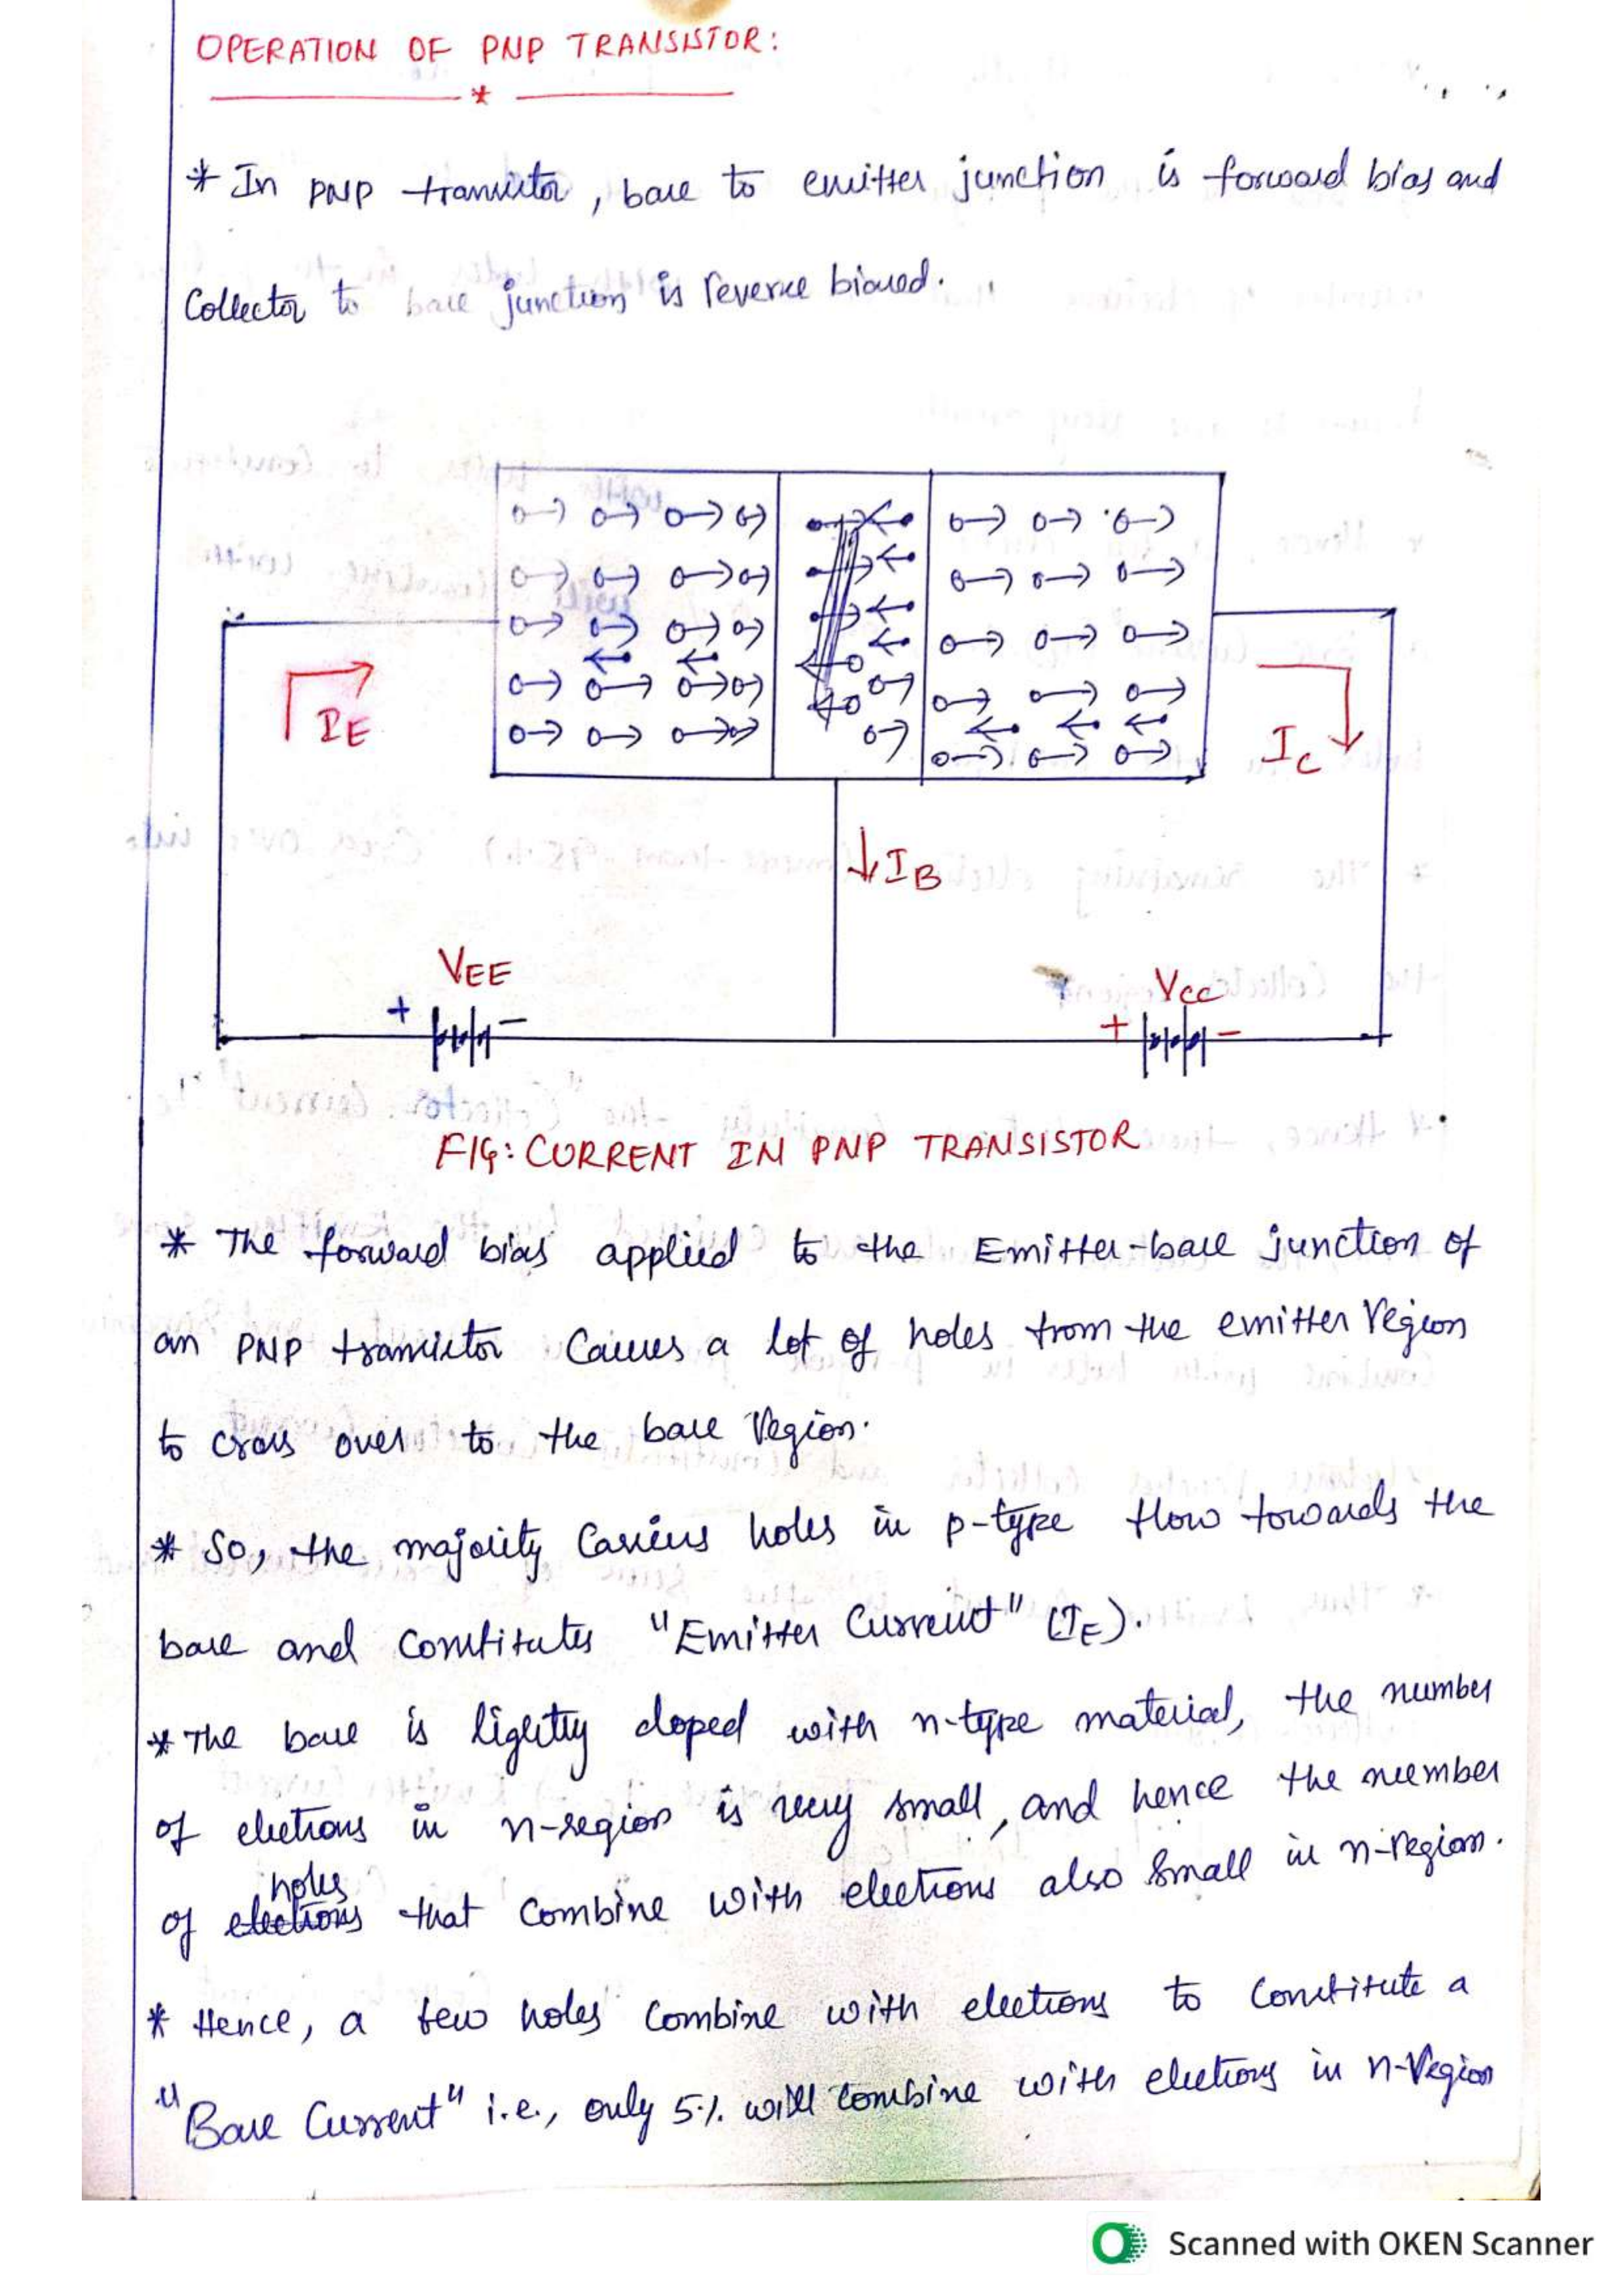 OPERATION OF PNP TRANSISTOR:
*
* In PNP transistor, base to emitter junction is forward bias and
Collector to base junction is reverse biased.
IE
IC
IB
VEE
+ -
VCC
+ -
FIG: CURRENT IN PNP TRANSISTOR
* The forward bias applied to the Emitter-base junction of
an PNP transistor Causes a lot of holes from the emitter region
to cross over to the base region.
* So, the majority Carriers holes in p-type flow towards the
base and constitutes "Emitter Current" (IE).
* The base is lightly doped with n-type material, the number
of electrons in n-region is very small, and hence the number
holes
of electrons that combine with electrons also small in n-region.
* Hence, a few holes combine with electrons to constitute a
"Base Current" i.e., only 5% will combine with electrons in n-region
Scanned with OKEN Scanner